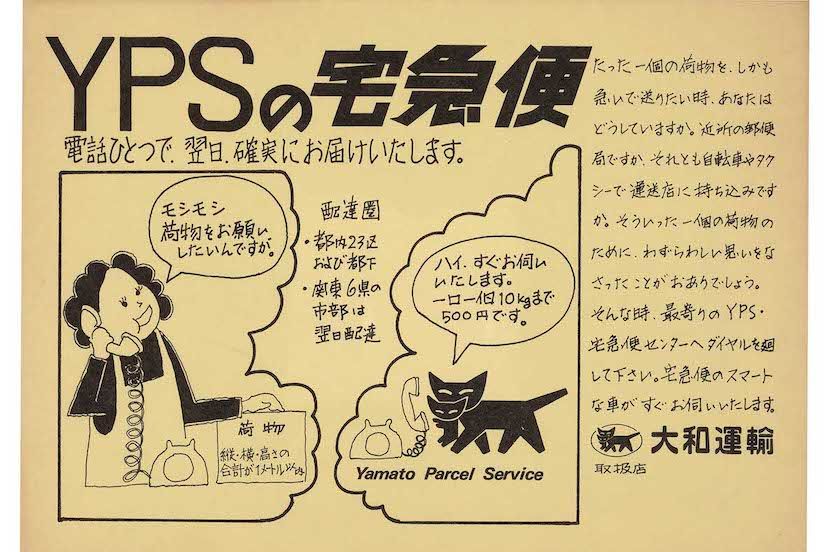 YPSの宅急便
電話ひとつで、翌日、確実にお届けいたします。
モシモシ
荷物をお願い
したいんですが。
荷物
縦・横・高さの
合計が1メートル以内
配達圏
・都内23区
および都下
・関東6県の
市部は
翌日配達
ハイ、すぐお伺い
いたします。
一口一個10kgまで
500円です。
Yamato Parcel Service
たった一個の荷物を、しかも
急いで送りたい時、あなたは
どうしていますか。近所の郵便
局ですか、それとも自転車やタク
シーで運送店に持ち込みです
か。そういった一個の荷物の
ために、わずらわしい思いをな
さったことがおありでしょう。
そんな時、最寄りのYPS・
宅急便センターへダイヤルを廻
して下さい。宅急便のスマート
な車がすぐお伺いいたします。
大和運輸
取扱店